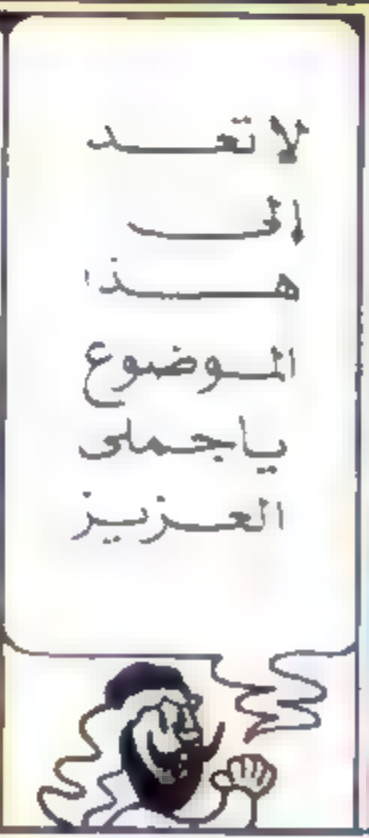 لا تعد
إلى
هـــذا
الموضوع
ياجملى
العـزيـز